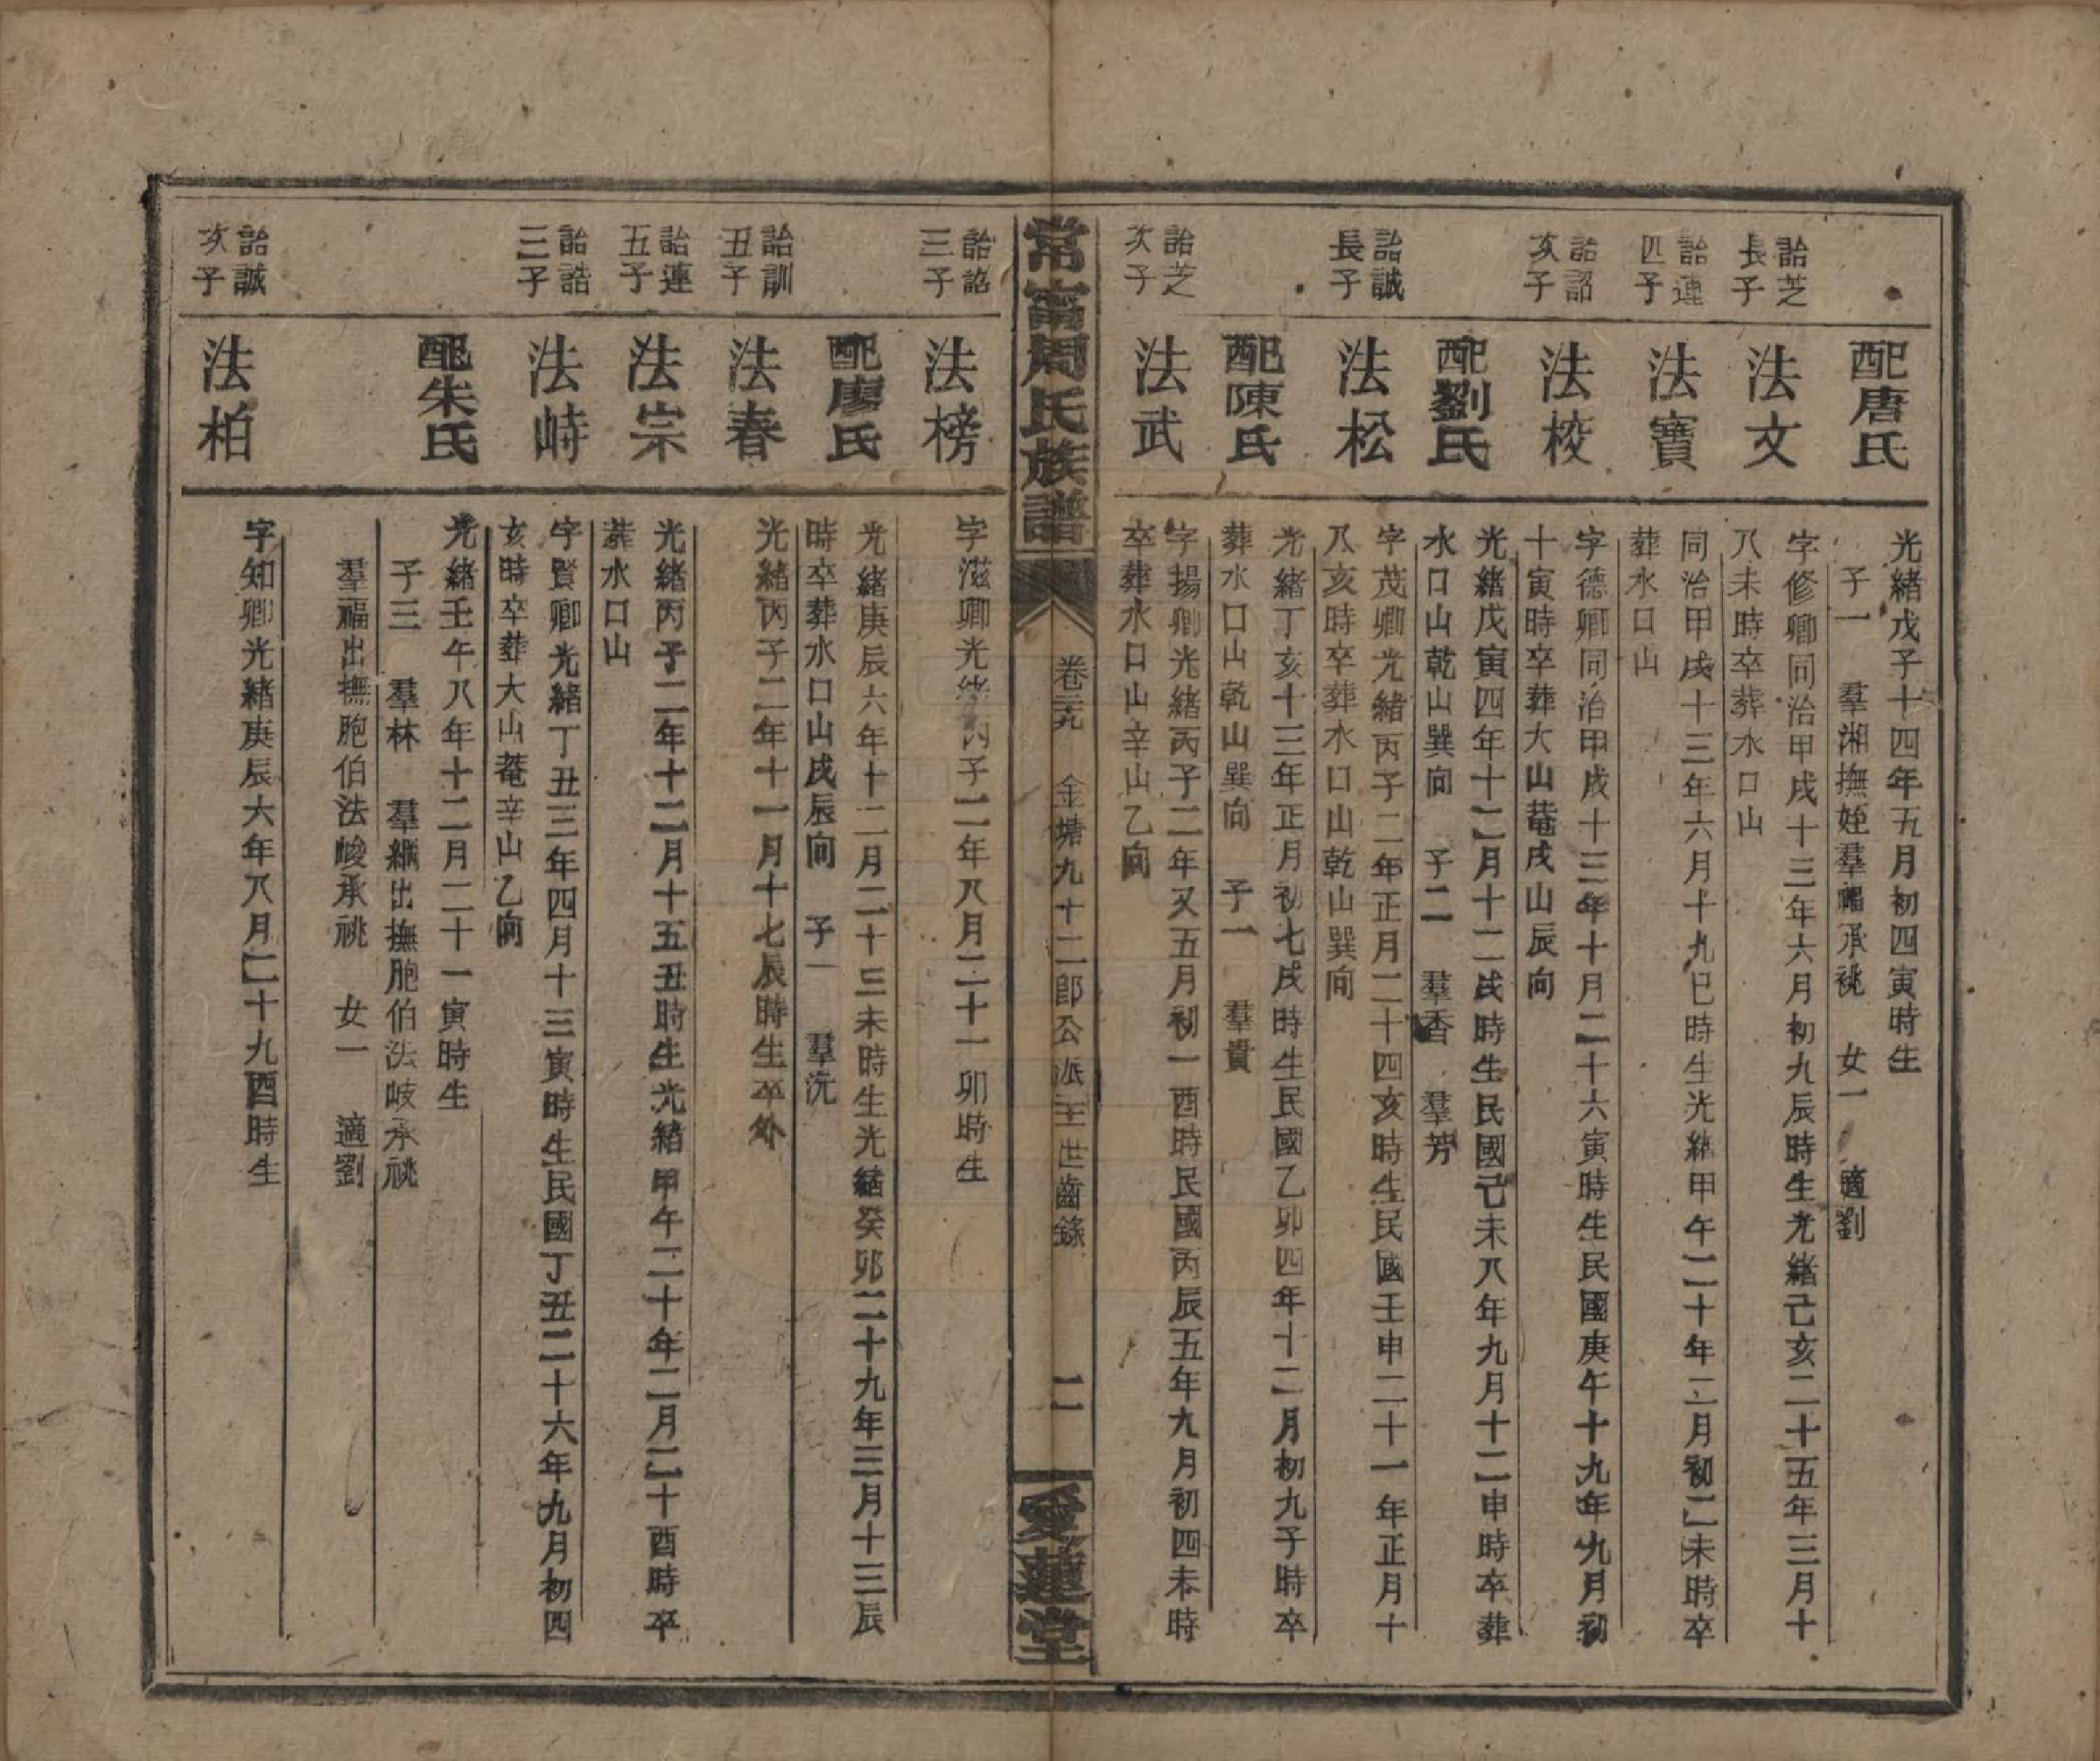 配唐氏
光緒戊子十四年五月初四寅時生
子一　羣湘撫姪羣福承祧　女一　適劉
詒芝長子
法文
字修卿同治甲戌十三年六月初九辰時生光緒己亥二十五年三月十
八未時卒葬水口山
詒連四子
法寶
同治甲戌十三年六月十九巳時生光緒甲午二十年二月初二未時卒
葬水口山
詒詔次子
法校
字德卿同治甲戌十三年十月二十六寅時生民國庚午十九年九月初
十寅時卒葬大山菴戌山辰向
配劉氏
光緒戊寅四年十二月十二戌時生民國己未八年九月十二申時卒葬
水口山乾山巽向　子二　羣香　羣芳
詒誠長子
法松
字茂卿光緒丙子二年正月二十四亥時生民國壬申二十一年正月十
八亥時卒葬水口山乾山巽向
配陳氏
光緒丁亥十三年正月初七戌時生民國乙卯四年十二月初九子時卒
葬水口山乾山巽向　子一　羣貴
詒芝次子
法武
字揚卿光緒丙子二年又五月初一酉時民國丙辰五年九月初四未時
卒葬水口山辛山乙向
常甯周氏族譜
卷三九　金塘九十二郎公派世齒錄　二
愛蓮堂
詒詔三子
法榜
字滋卿光緒丙子二年八月二十一卯時生
配廖氏
光緒庚辰六年十二月二十三未時生光緒癸卯二十九年三月十三辰
時卒葬水口山戌辰向　子一　羣沅
詒訓五子
法春
光緒丙子二年十一月十七辰時生卒外
詒連五子
法宗
光緒丙子二年十二月十五丑時生光緒甲午二十年二月二十酉時卒
葬水口山
詒誥三子
法峙
字賢卿光緒丁丑三年四月十三寅時生民國丁丑二十六年九月初四
亥時卒葬大山菴辛山乙向
配朱氏
光緒壬午八年十二月二十一寅時生
子三　羣林　羣出撫胞伯法岐承祧
羣福出撫胞伯法峻承祧　女一　適劉
詒誠次子
法柏
字知卿光緒庚辰六年八月二十九酉時生